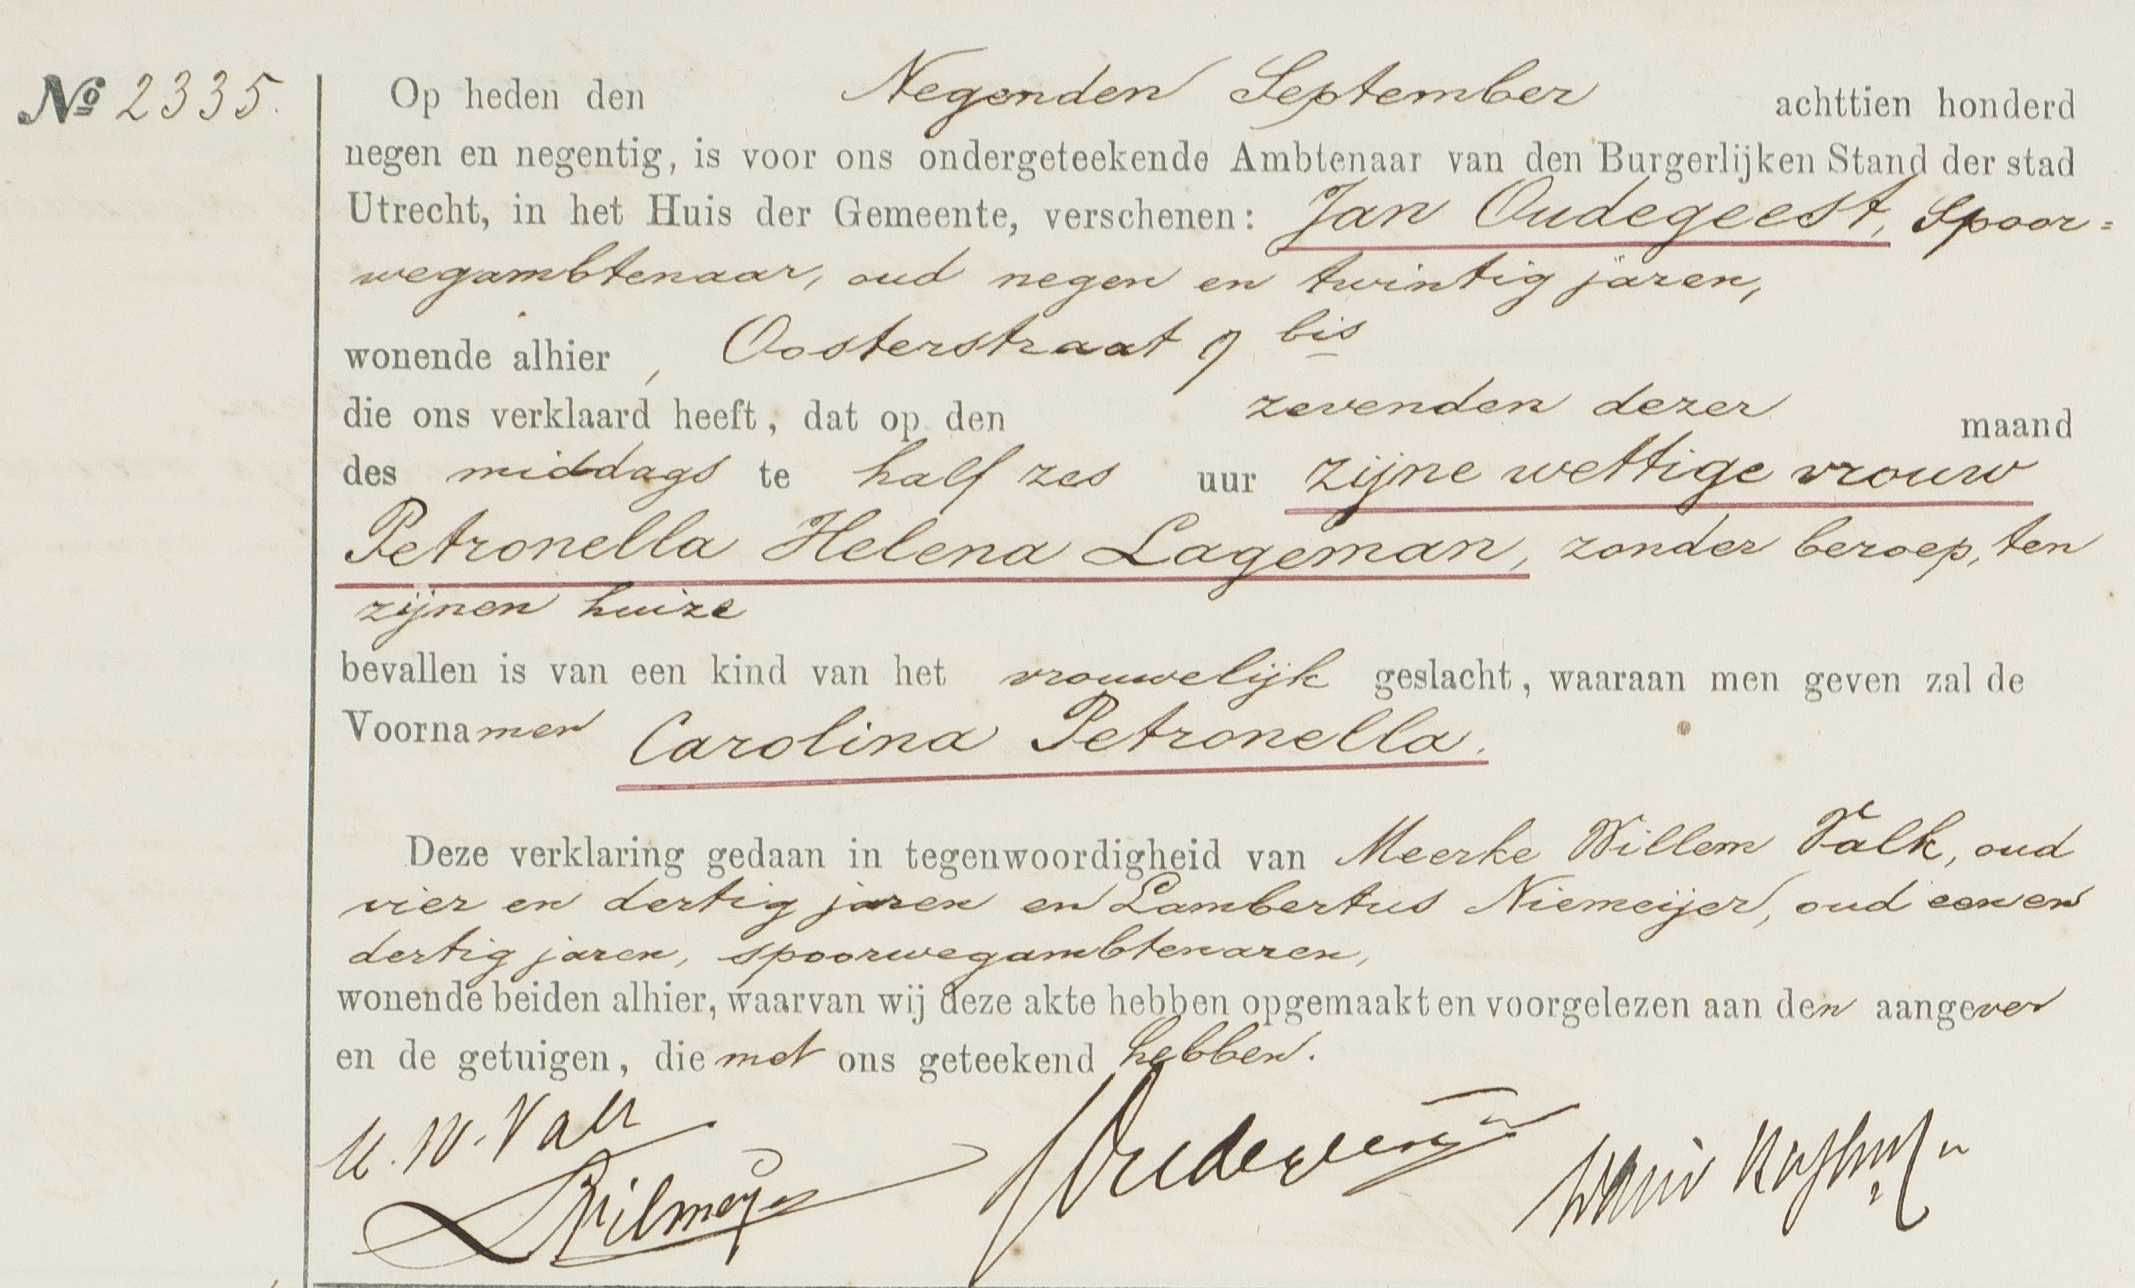 No 2335.
Op heden den Negenden September achttien honderd
negen en negentig, is voor ons ondergeteekende Ambtenaar van den Burgerlijken Stand der stad
Utrecht, in het Huis der Gemeente, verschenen: Jan Oudegeest, Spoor=
wegambtenaar, oud negen en twintig jaren,
wonende alhier, Oosterstraat 9 bis
die ons verklaard heeft, dat op den zevenden dezer maand
des middags te half zes uur zijne wettige vrouw
Petronella Helena Lageman, zonder beroep, ten
zijnen huize
bevallen is van een kind van het vrouwelijk geslacht, waaraan men geven zal de
Voornamen Carolina Petronella.
Deze verklaring gedaan in tegenwoordigheid van Meerke Willem Valk, oud
vier en dertig jaren en Lambertus Niemeijer, oud een en
dertig jaren, spoorwegambtenaren,
wonende beiden alhier, waarvan wij deze akte hebben opgemaakt en voorgelezen aan den aangever
en de getuigen, die met ons geteekend hebben.
M. W. Valk
JOudegeest